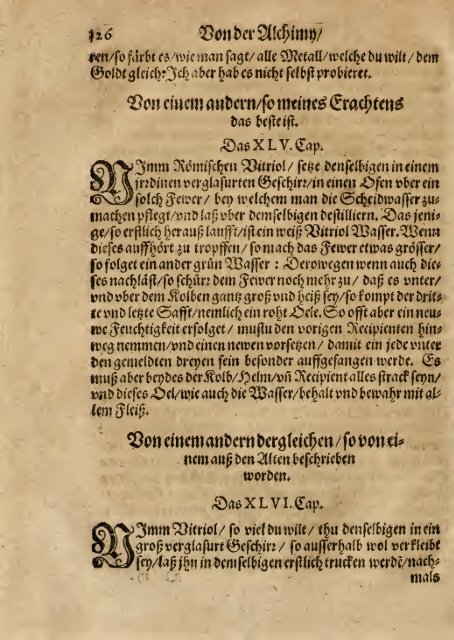 126 Von der Alchimy/
ren/ so färbt es/ wie man sagt/ alle Metall/ welche du wilt/ dem
Goldt gleich: Jch aber hab es nicht selbst probieret.
Von einem andern/ so meines Erachtens
das beste ist.
Das XLV. Cap.
NJmm Römischen Vitriol/ setze denselbigen in einem
jrrdinen verglasurten Geschirr/ in einen Ofen vber ein
solch Fewer/ bey welchem man die Scheidwasser zu-
machen pflegt/ vnd laß vber demselbigen destilliern. Das jeni-
ge/ so erstlich herauß laufft/ ist ein weiß Vitriol Wasser. Wenn
dieses auffhört zu tropffen/ so mach das Fewer etwas grösser/
so folget ein ander grün Wasser: Derowegen wenn auch die-
ses nachläst/ so schür dem Fewer noch mehr zu/ daß es vnter/
vnd vber dem Kolben gantz groß vnd heiß sey/ so kompt der drit-
te vnd letzte Safft/ nemlich ein roht Oele. So offt aber ein neu-
we Feuchtigkeit erfolget/ mustu den vorigen Recipienten hin-
weg nemmen/ vnd einen newen vorsetzen/ damit ein jede vnter
den gemeldten dreyen sein besonder auffgefangen werde. Es
muß aber beydes der Kolb/ Helm/ vñ Recipient alles starck seyn/
vnd dieses Oel/ wie auch die Wasser/ behalt vnd bewahr mit al-
lem Fleiß.
Von einem andern dergleichen/ so von ei-
nem auß den Alten beschrieben
worden.
Das XLVI. Cap.
NJmm Vitriol/ so viel du wilt/ thu denselbigen in ein
groß verglasurt Geschirr/ so ausserhalb wol verkleibt
sey/ laß jhn in demselbigen erstlich trucken werdē/ nach-
mals